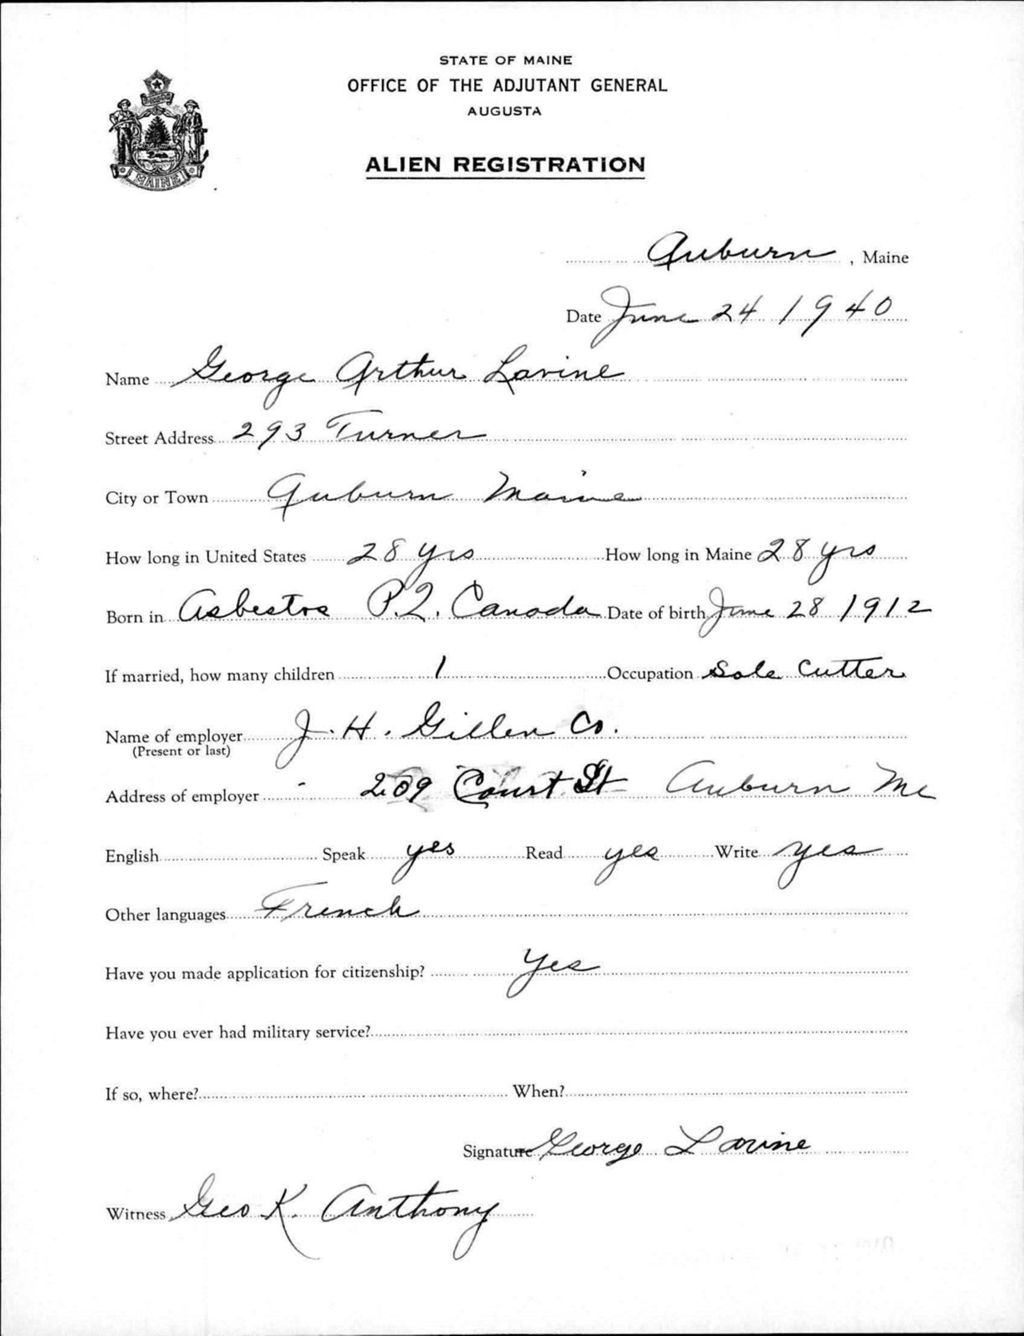 STATE OF MAINE
OFFICE OF THE ADJUTANT GENERAL
AUGUSTA
ALIEN REGISTRATION
MAINE
Auburn, Maine
Date June 24 1940
Name George Arthur Lavine
Street Address 293 Turner
City or Town Auburn Maine
How long in United States 28 yrs How long in Maine 28 yrs
Born in Asbestos P.Q. Canada Date of birth June 28 1912
If married, how many children 1 Occupation Sole Cutter
Name of employer J. H. Gillen Co.
(Present or last)
Address of employer 209 Court St Auburn Me
English Speak yes Read yes Write yes
Other languages French
Have you made application for citizenship? Yes
Have you ever had military service?
If so, where? When?
Signature George Lavine
Witness Geo K. Anthony